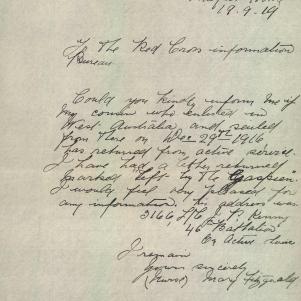 19.9.19
The Red Cross information
Bureau
Could you kindly inform me if
my cousin who enlisted in
West Australia and sailed
from there on Dec 29th 1916
has returned from active service
I have had a letter returned
marked left by the
I would feel very pleased for
any information. his address was
3166 J. P. Kenny
46 Battalion
On Active
I remain
yours sincerely
(Nurse) Mary Fitzgerald